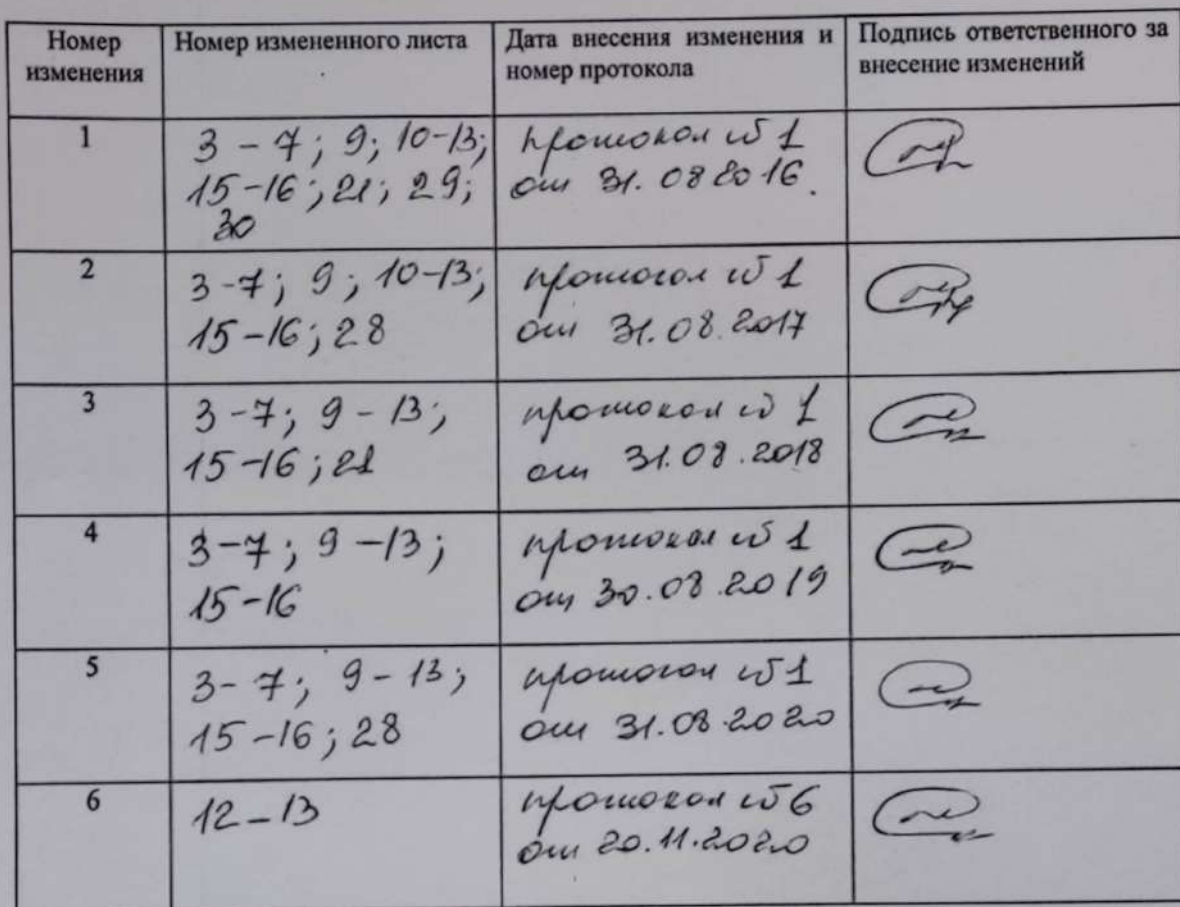 Номер изменения
Номер измененного листа
Дата внесения изменения и номер протокола
Подпись ответственного за внесение изменений
1
3 - 7; 9; 10-13;
15-16; 21; 29;
30
протокол № 1
от 31.08 2016.
2
3-7; 9; 10-13;
15-16; 28
протокол № 1
от 31.08.2017
3
3-7; 9-13;
15-16; 21
протокол № 1
от 31.08.2018
4
3-7; 9-13;
15-16
протокол № 1
от 30.08.2019
5
3-7; 9-13;
15-16; 28
протокол № 1
от 31.08.2020
6
12-13
протокол № 6
от 20.11.2020